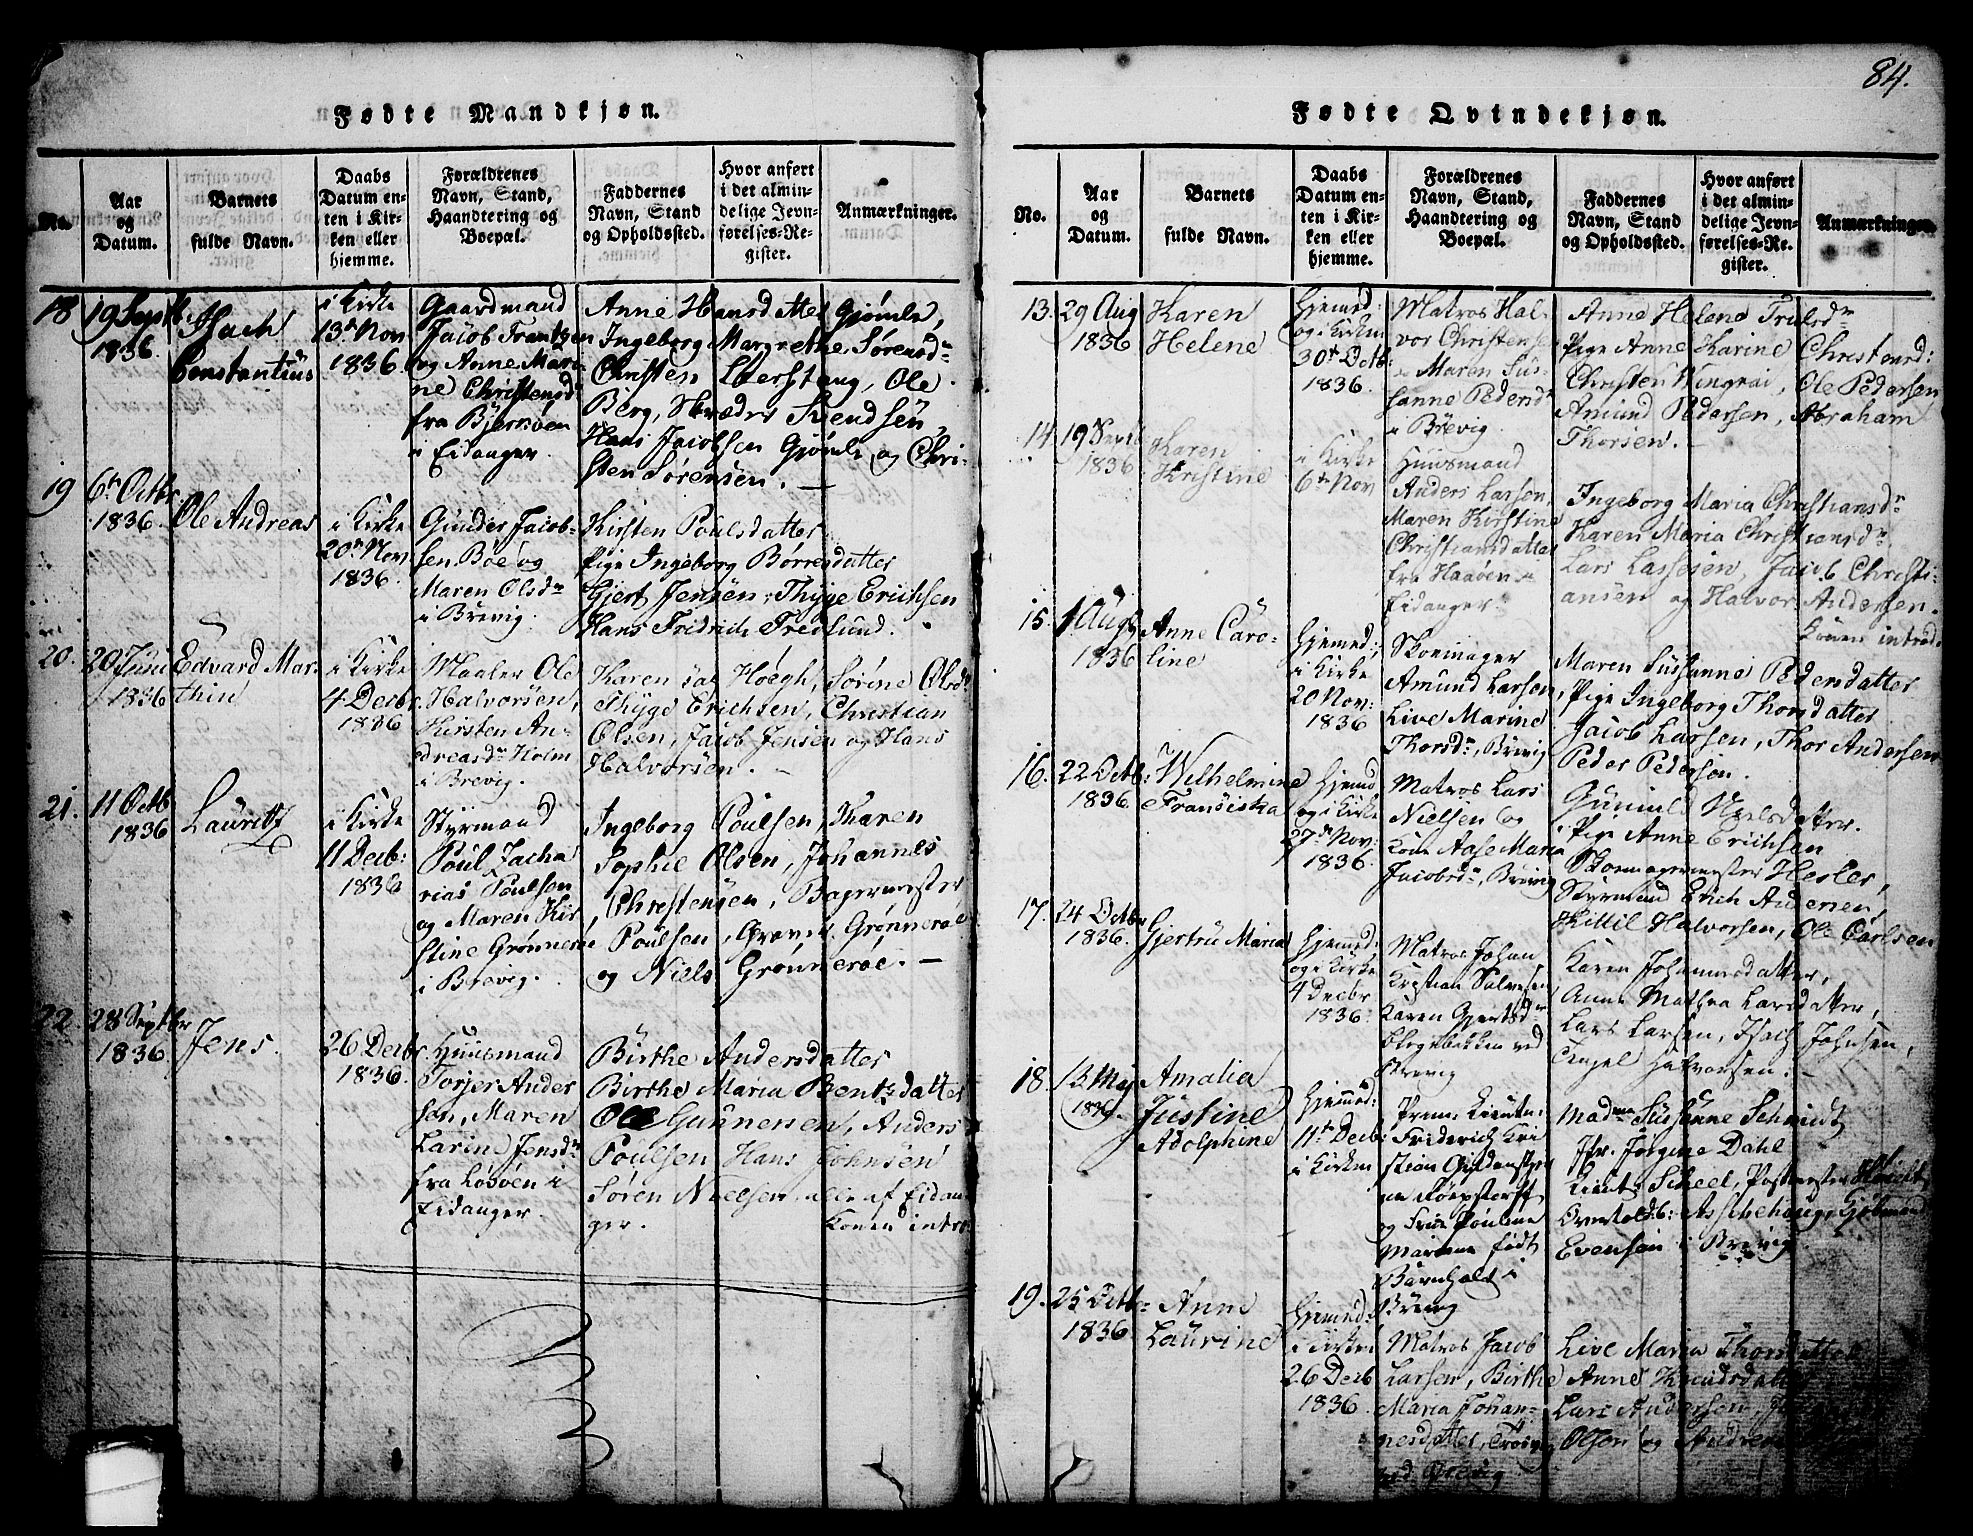 84.
Fødte Mandkjøn.
No.
Aar og Datum.
Barnets fulde Navn.
Daabs Datum enten i Kirken eller hjemme.
Forældrenes Navn, Stand, Haandtering og Boepæl.
Faddernes Navn, Stand og Opholdssted.
Hvor anført i det almindelige Jevnførelses-Register.
Anmærkninger.
18
19 Septb
1836.
Isach
Constantius
i Kirke
13de Nov
1836
Gaardmand
Jacob Frantzen
og Anne Mari-
ne Christensd
fra Bjerøen
i Eidanger
Anne Hansdatter Gjømle,
Ingeborg Margrethe Sørensdr
Christen Leerstang, Ole
Berg, Skræder Svendsen
Hans Jacobsen Gjømle og Chri-
sten Sørensen.
19
6te Octbr
1836.
Ole Andreas
i Kirke
20de Nov
1836.
Gunder Jacob-
sen Bøe og
Maren Olsdr
i Brevig.
Kirsten Poulsdatter
Pige Ingeborg Børresdatter
Gjert Jensen, Thyge Erichsen
Hans Fridrich Fredlund.
20.
20 Juni
1836
Edvard Mar-
thin
i Kirke
4 Decbr
1836
Maaler Ole
Halvorsen,
Kirsten An-
dreasdr Holm
i Brevig.
Karen sal Høegh, Sørine Olsdr
Thyge Erichsen, Christian
Olsen, Jacob Jensen og Hans
Halvorsen.
21.
11 Octb
1836
Lauritz
i Kirke
11 Decb:
1836
Styrmand
Poul Zacha
rias Poulsen
og Maren Kir
stine Grønneroe
i Brevig.
Ingeborg Poulsen, Karen
Sophie Olsen, Johannes
Christensen, Bagermester
Poulsen, Grønneroe
og Niels Grønneroe.
22.
28 Septbr
1836
Jens.
26 Decbr
1836.
Huusmand
Torjer Ander
sen, Maren
Larine Jensdr
fra Løvøen i
Eidanger.
Birthe Andersdatter
Birthe Maria Bentsdatter
Ole Gunnersen, Anders
Poulsen Hans Johnsen
Søren Nielsen alle af Eidan
ger.
Konen intro
Fødte Qvindekjøn.
No.
Aar og Datum.
Barnets fulde Navn.
Daabs Datum enten i Kirken eller hjemme.
Forældrenes Navn, Stand, Haandtering og Boepæl.
Faddernes Navn, Stand og Opholdssted.
Hvor anført i det almindelige Jevnførelses-Register.
Anmærkninger.
13.
29 Aug
1836
Karen
Helene
Hjemed:
og i Kirken
30te Octb
1836.
Matros Hal-
vor Christense
Maren Sus-
sanne Pedersdr
i Brevig.
Anne Helene Trulsdr
Pige Anne Karine Christensd:
Christen Wingrai, Ole Pedersen
Amund Pedersen, Abraham
Thorsen.
14.
19 Septb
1836
Karen
Kristine
i Kirke
6te Nov
Huusmand
Anders Larsen,
Maren Kirstine
Christiansdatter
fra Haaøen
Eidanger
Ingeborg Maria Christiansdr
Karen Maria Christiansdr
Lars Lassesen, Jacob Christi-
ansen og Halvor Andersen.
Konen introd.
15.
1 Aug
1836
Anne Caro-
line
Hjemed:
i Kirke
20 Nov:
1836
Skomager
Amund Larsen
Live Marine
Thorsdr, Brevig
Maren Sussanne Pedersdatter
Pige Ingeborg Thorsdatter
Jacob Larsen, Thor Andersen
Peder Pedersen.
16.
22 Octb:
1836.
Wilhelmine
Fransiska
Hjemed
og i Kirke
27de Nov:
1836.
Matros Lars
Nielsen og
Kone Aase Maria
Jacobsdr, Brevig
Gunild Nielsdatter.
Pige Anne Erichsen
Skomagermester Hesler,
Styrmand Erich Andersen,
Kittil Halvorsen, Ole Carlsen
17.
24 Octbr
1836.
Gjertru Maria
Hjemed:
og i Kirke
4 Decbr
1836.
Matros Johan
Kristian Salvesen
Karen Gjertsdr
Blegebakken ved
Brevig
Karen Johannesdatter,
Anne Mathea Larsdatter,
Lars Larsen, Isach Johnsen,
Engel Halvorsen.
18.
13 May
1836.
Amalia
Justine
Adolphine
Hjemed:
11te Decb:
i Kirken
Prem: Lieutn:
Friderich Kri
stian Gyldenstjer
ne Roepstorff
og Frue Pouline
Mariane født
Barnholdt i
Brevig
Madme Susanne Schmidt
Jfr. Jørgine Dahl
Lieut: Scheel, Postmester Schmidt
Overtoldb: Asschehoug, Kjøbmand
Evensen i Brevig.
19.
25 Octb:
1836
Anne
Laurine
Hjemed
i Kirken
26 Decb
1836
Matros Jacob
Larsen, Birthe
Maria Johan-
nesdatter,
ved Brevig.
Live Maria Thorsdatter
Anne Knudsdatter
Lars Andersen,
Olsen og Andreas